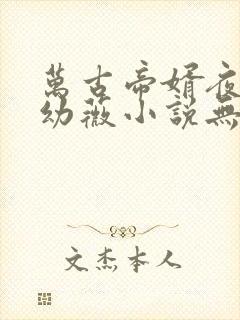 萬古帝婿夜
幼薇小説無
文杰本人